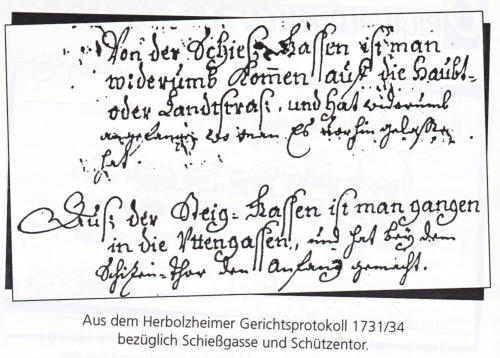 Von der Schieß Gassen ist man
widerumb Komen auf die Haubt-
oder Landtstraß, und hat widerumb
angefangen wo man Es vorhin gelassen
hat
Auß der Steig-Gassen ist man gangen
in die Vttengassen, und hat bey dem
Schizen-Thor den Anfang gemacht.
Aus dem Herbolzheimer Gerichtsprotokoll 1731/34
bezüglich Schießgasse und Schützentor.